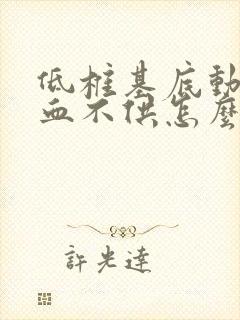 低椎基底動
血不供怎麼
許光達